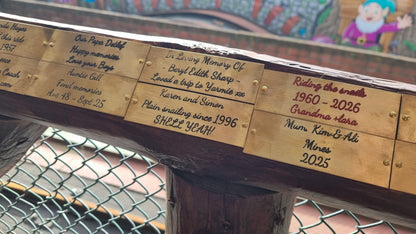 1967
Our Papa Detlef
Happy memories
Love your Boys
Coach
Auntie Gill
Fond memories
Aug 48 - Sept 25
In Loving Memory Of
Beryl Edith Sharp
Loved a trip to Yarmie xx
Karen and Simon
Plain snailing since 1996
SHELL YEAH!
Riding the snails
1960 - 2026
Grandma
Mum Kim & Ali
Mines
2025